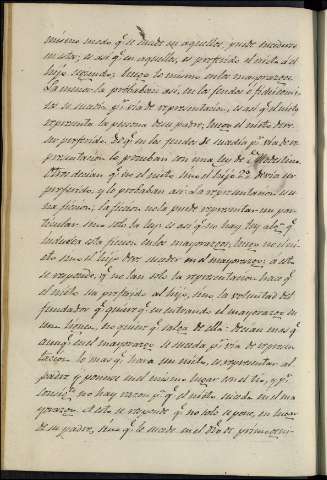 mismo modo q.e se suede en aquellos, puede suceder
en estos; es asi q.e en aquellos, es preferido el nieto al
hijo segundo; luego lo mismo en los mayorazgos.
La menor la probaban asi, en los feudos ó fideicomi-
sos se sucedia p.r via de representacion, es asi q.e el nieto
representa la persona de su padre; luego el nieto debe
ser preferido. Q.e en los feudos se sucedia p.r via de re-
presentacion lo prueban con una ley de
Otros decian q.e no el nieto sino el hijo 2.º debia ser
preferido, y lo probaban asi: La representacion es u-
na ficcion; la ficcion no la puede representar un par-
ticular sino solo la ley: es asi q.e no hay ley alg.a q.e
induzca esta ficcion en los mayorazgos; luego no el ni-
eto sino el hijo debe suceder en el mayorazgo: a esto
se responde, q.e no tan solo la representacion hace q.e
el nieto sea preferido al hijo, sino la voluntad del
fundador q.e quiere q.e en entrando el mayorazgo en
una linea, no quiere q.e salga de ella: decian mas q.e
aunq.e en el mayorazgo se suceda p.r via de represen-
tacion lo mas q.e hará un nieto, es representar al
padre y ponerse en el mismo lugar con el tio, y p.r
consig.te no hay razon p.a q.e el nieto suceda en el ma-
yorazgo. A esto se responde q.e no solo se pone en lugar
de su padre, sino q.e le sucede en el dro de primogeni-